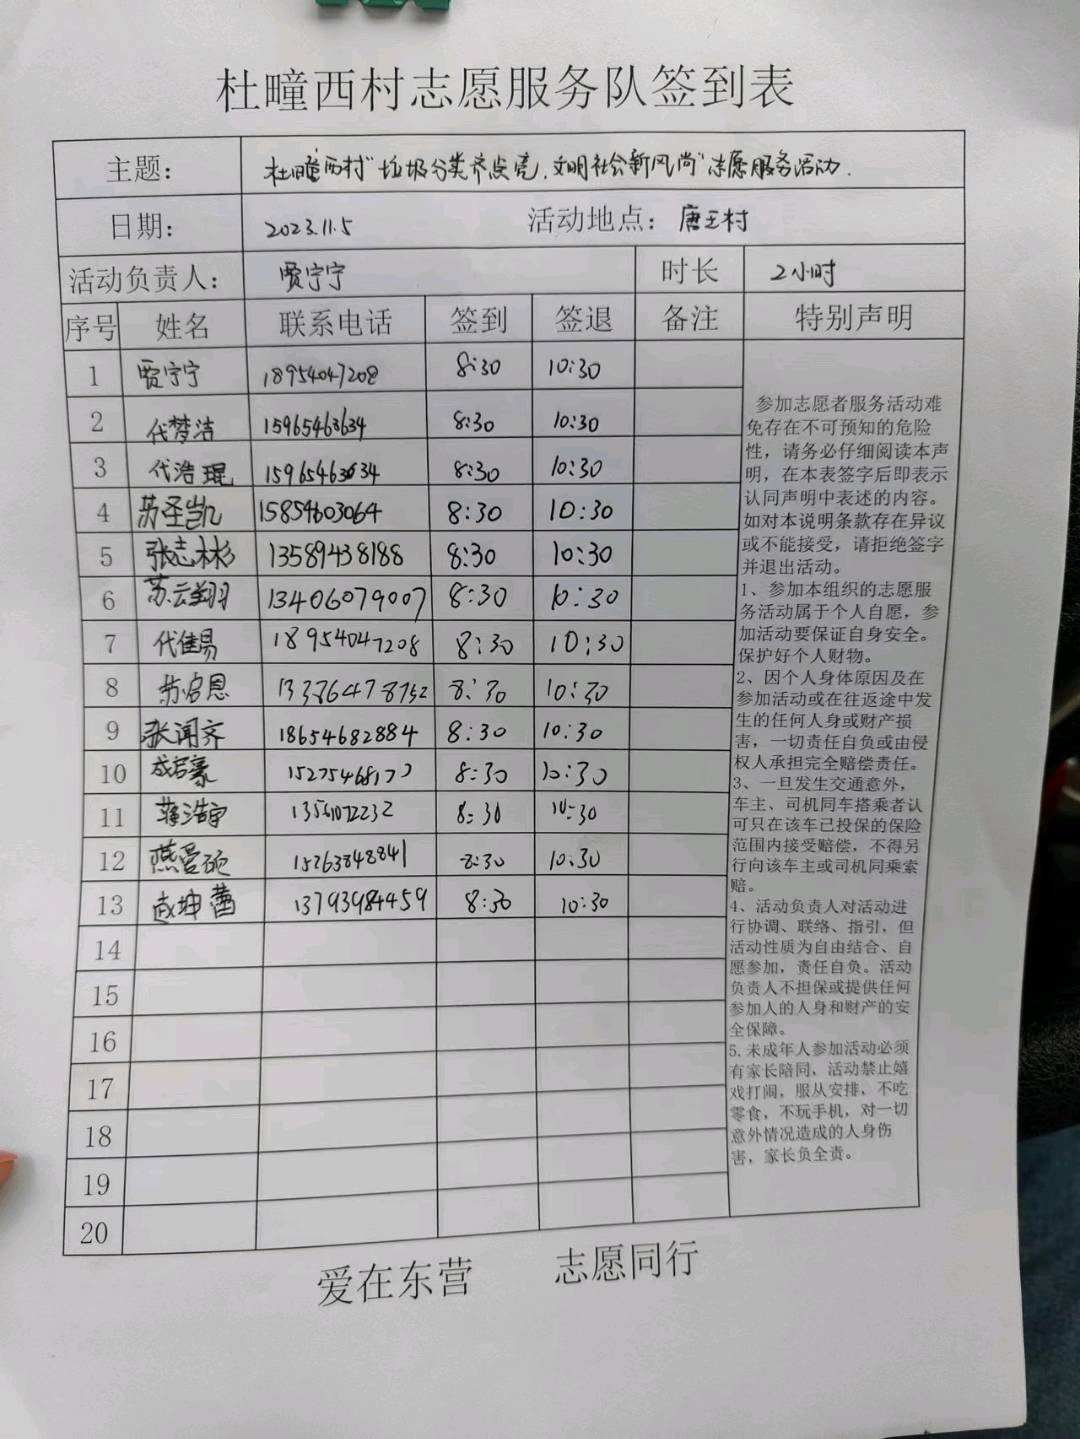 杜疃西村志愿服务队签到表
主题: 杜疃西村"垃圾分类齐点亮,文明社会新风尚"志愿服务活动.
日期: 2023.11.5 活动地点: 唐王村
活动负责人: 贾宁宁 时长 2小时
序号 姓名 联系电话 签到 签退 备注 特别声明
1 贾宁宁 18954047208 8:30 10:30
2 代梦洁 15965463634 8:30 10:30
3 代浩琨 15965463634 8:30 10:30
4 苏圣凯 15854603064 8:30 10:30
5 张志彬 13589438188 8:30 10:30
6 苏云翔 13406079007 8:30 10:30
7 代佳易 18954047208 8:30 10:30
8 苏启恩 8:30 10:30
9 张闻齐 18654682884 8:30 10:30
10 8:30 10:30
11 蒋浩宇 8:30 10:30
12 15263848841 8:30 10:30
13 13793984459 8:30 10:30
14
15
16
17
18
19
20
参加志愿者服务活动难
免存在不可预知的危险
性，请务必仔细阅读本声
明，在本表签字后即表示
认同声明中表述的内容。
如对本说明条款存在异议
或不能接受，请拒绝签字
并退出活动。
1、参加本组织的志愿服
务活动属于个人自愿，参
加活动要保证自身安全。
保护好个人财物。
2、因个人身体原因及在
参加活动或在往返途中发
生的任何人身或财产损
害，一切责任自负或由侵
权人承担完全赔偿责任。
3、一旦发生交通意外，
车主、司机同车搭乘者认
可只在该车已投保的保险
范围内接受赔偿，不得另
行向该车主或司机同乘索
赔。
4、活动负责人对活动进
行协调、联络、指引，但
活动性质为自由结合、自
愿参加，责任自负。活动
负责人不担保或提供任何
参加人的人身和财产的安
全保障。
5.未成年人参加活动必须
有家长陪同，活动禁止嬉
戏打闹，服从安排，不吃
零食，不玩手机，对一切
意外情况造成的人身伤
害，家长负全责。
爱在东营 志愿同行